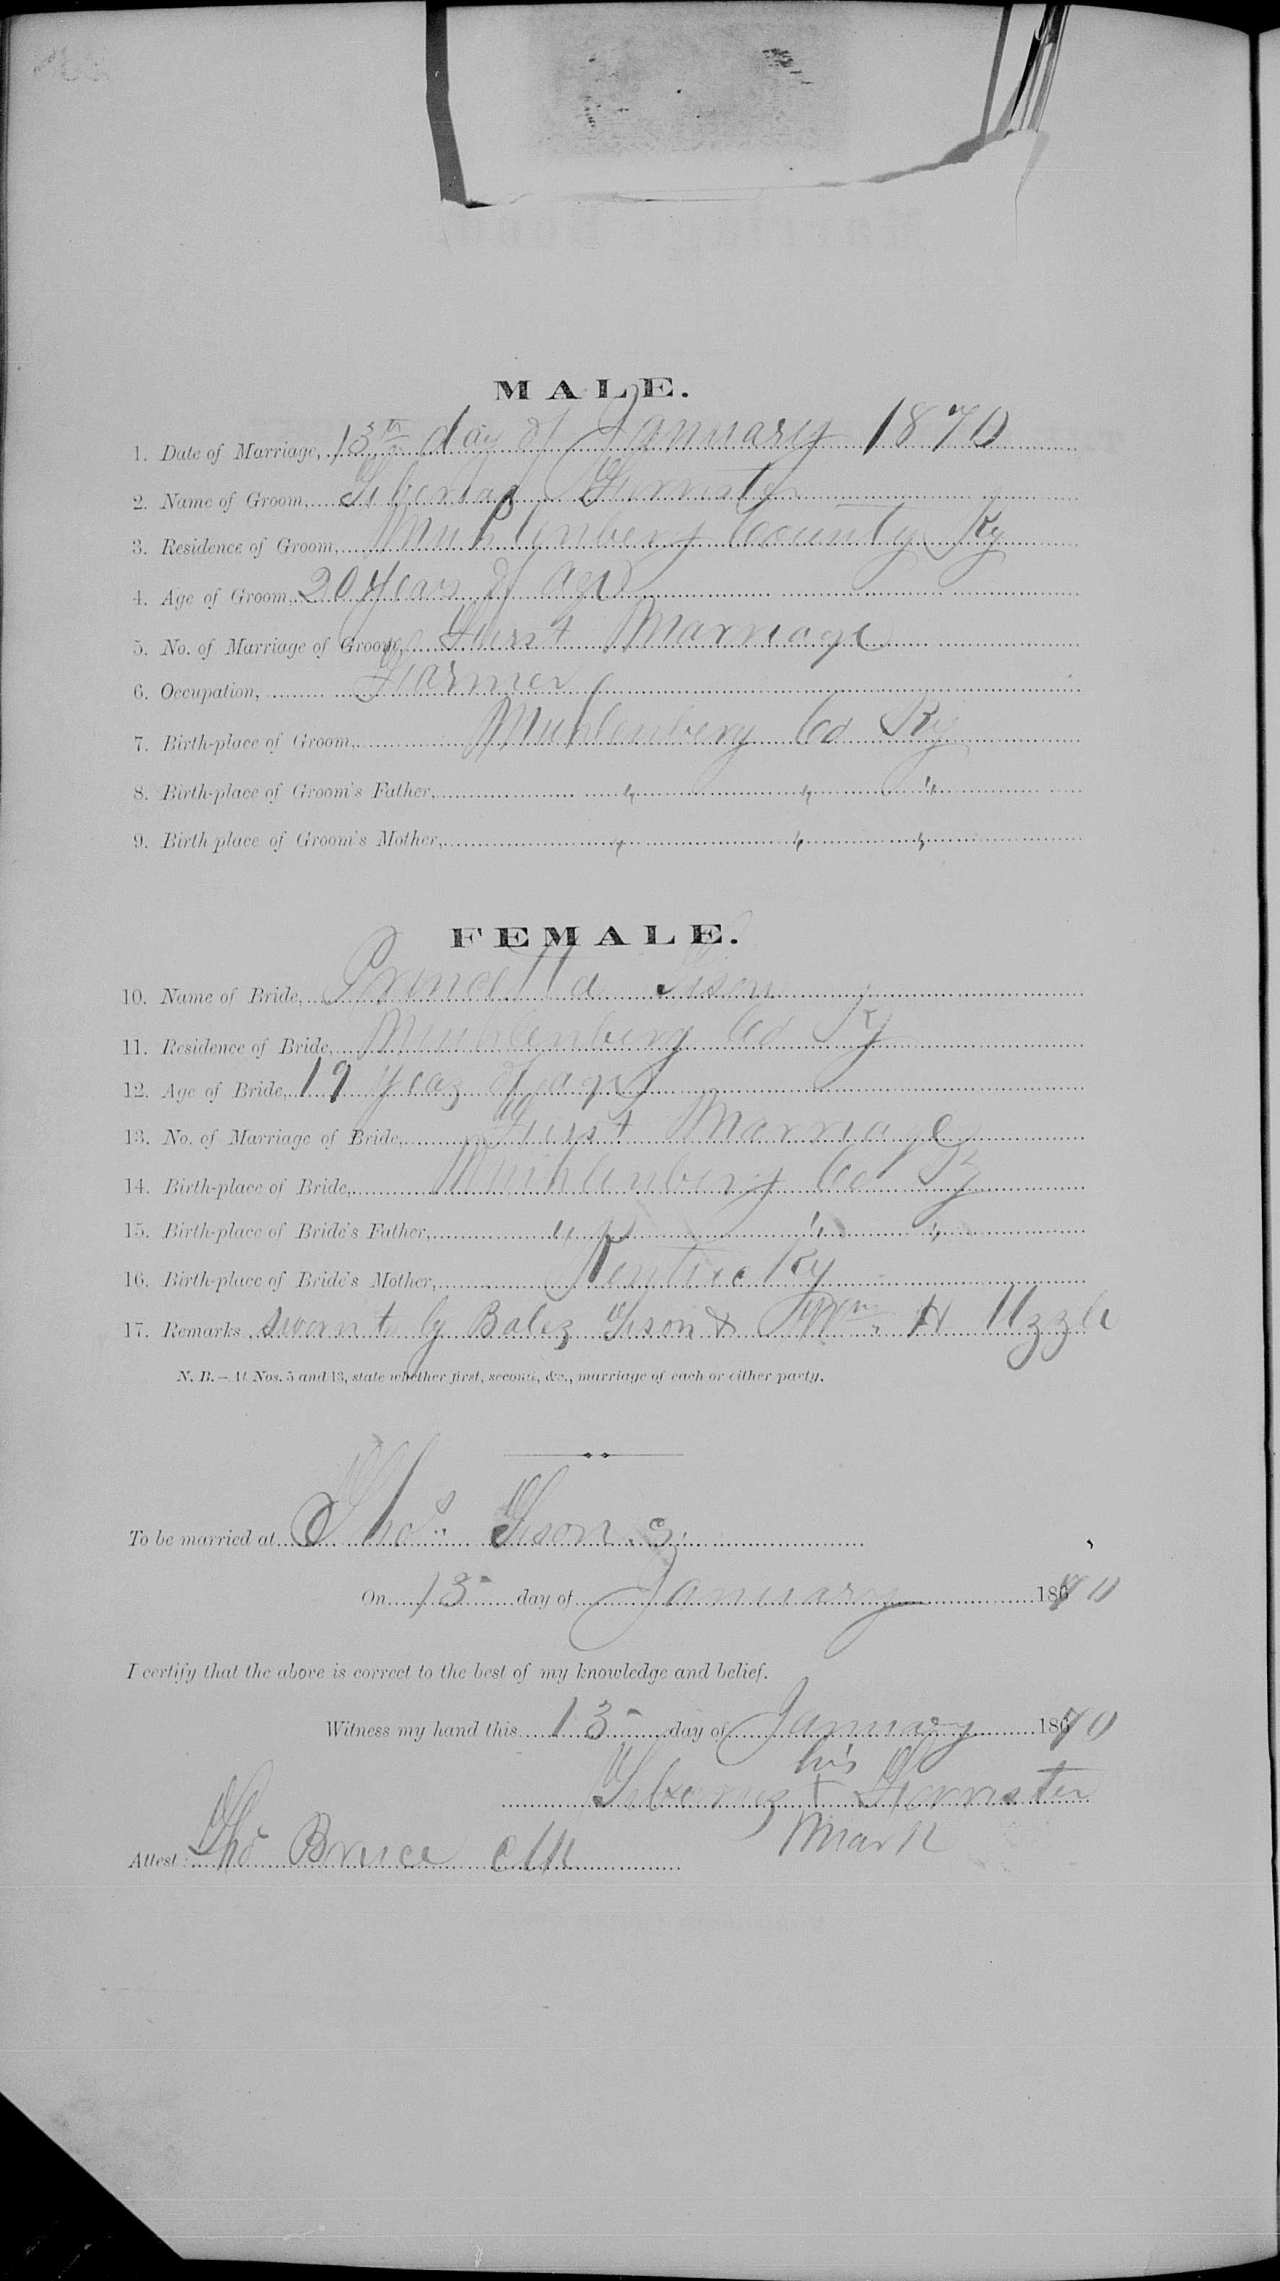 MALE.
1. Date of Marriage, 13th day of January 1870
2. Name of Groom, Forrister
3. Residence of Groom, Muhlenberg County Ky
4. Age of Groom, 20 years of age
5. No. of Marriage of Groom, First Marriage
6. Occupation, Farmer
7. Birth-place of Groom, Muhlenberg Co Ky
8. Birth-place of Groom's Father, " " "
9. Birth place of Groom's Mother, " " "
FEMALE.
10. Name of Bride, Princella Gison
11. Residence of Bride, Muhlenberg Co Ky
12. Age of Bride, 19 years of age
13. No. of Marriage of Bride, First Marriage
14. Birth-place of Bride, Muhlenberg Co Ky
15. Birth-place of Bride's Father, " " "
16. Birth-place of Bride's Mother, Kentucky
17. Remarks sworn to by Balez Gison & Wm H Uzzle
N. B.—At Nos. 5 and 13, state whether first, second, &c., marriage of each or either party.
To be married at Thos. Gison,s
On 13 day of January 1870
I certify that the above is correct to the best of my knowledge and belief.
Witness my hand this 13 day of January 1870
his
+ Forrister
Mark
Attest: Tho Bruce clk